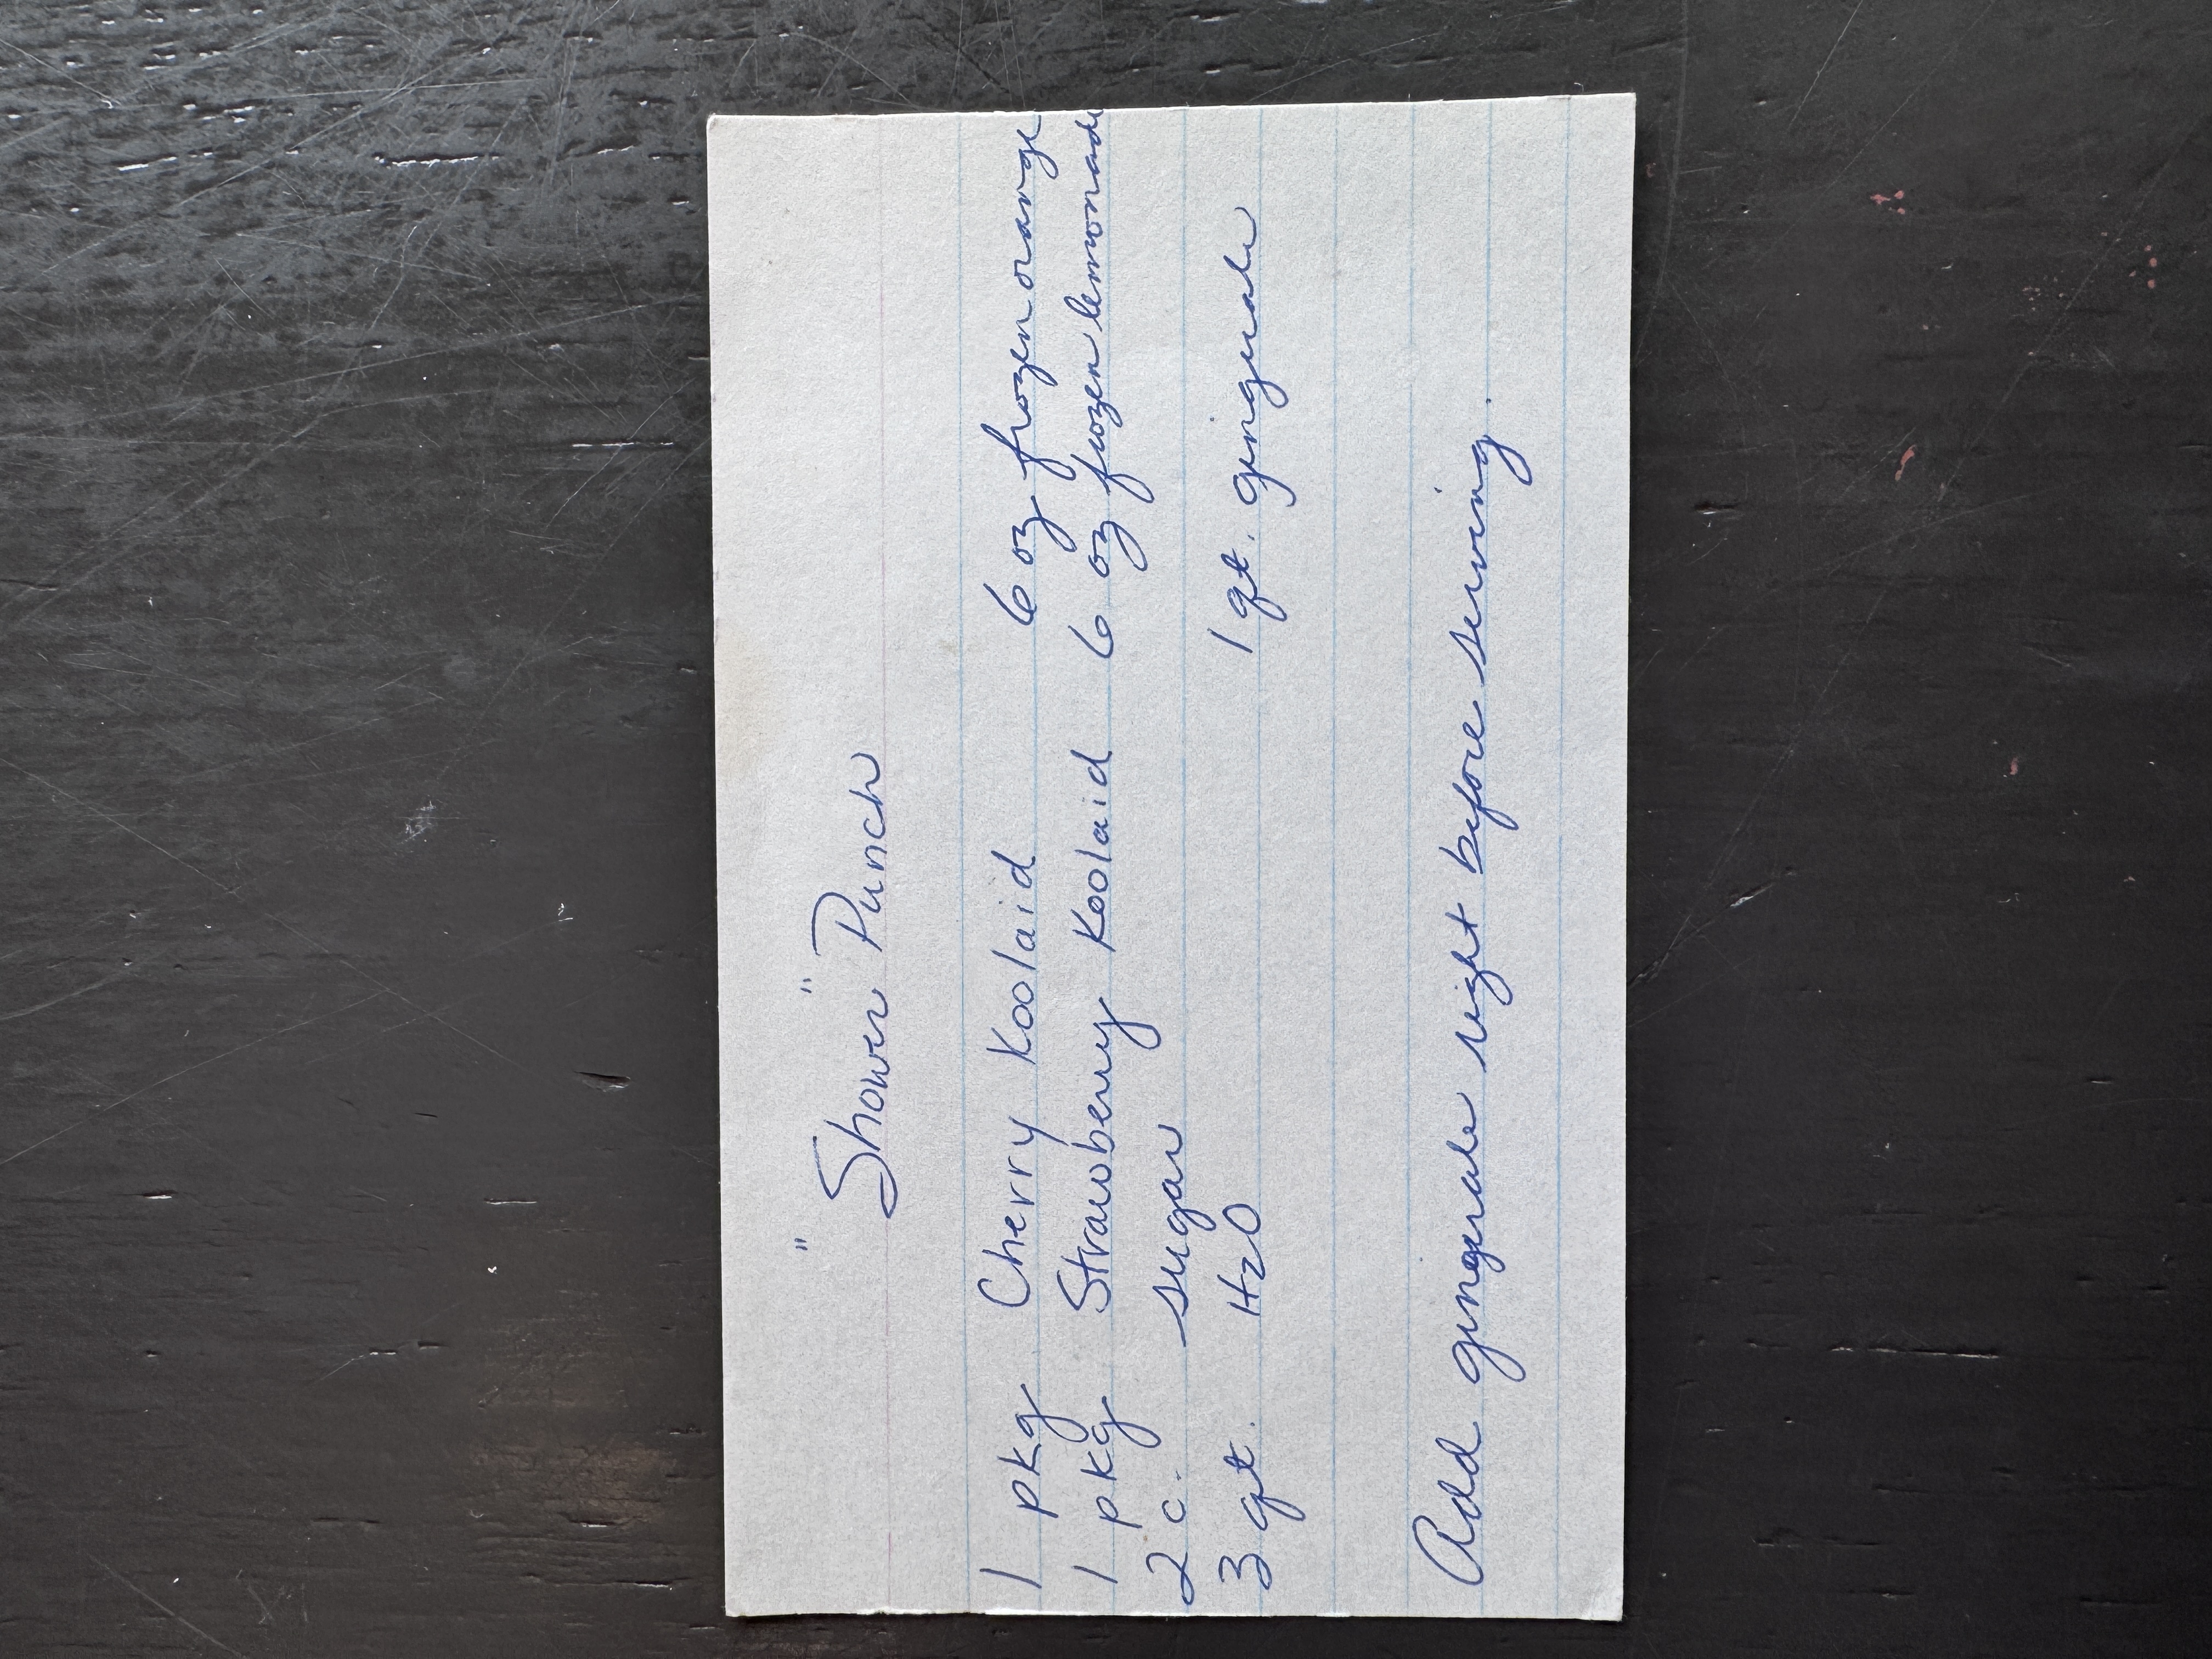 "Shower" Punch
1 pkg Cherry Koolaid 6 oz frozen orange
1 pkg Strawberry Koolaid 6 oz frozen lemonade
2 c. sugar
3 qt. H2O 1 qt. gingerale
Add gingerale right before serving.